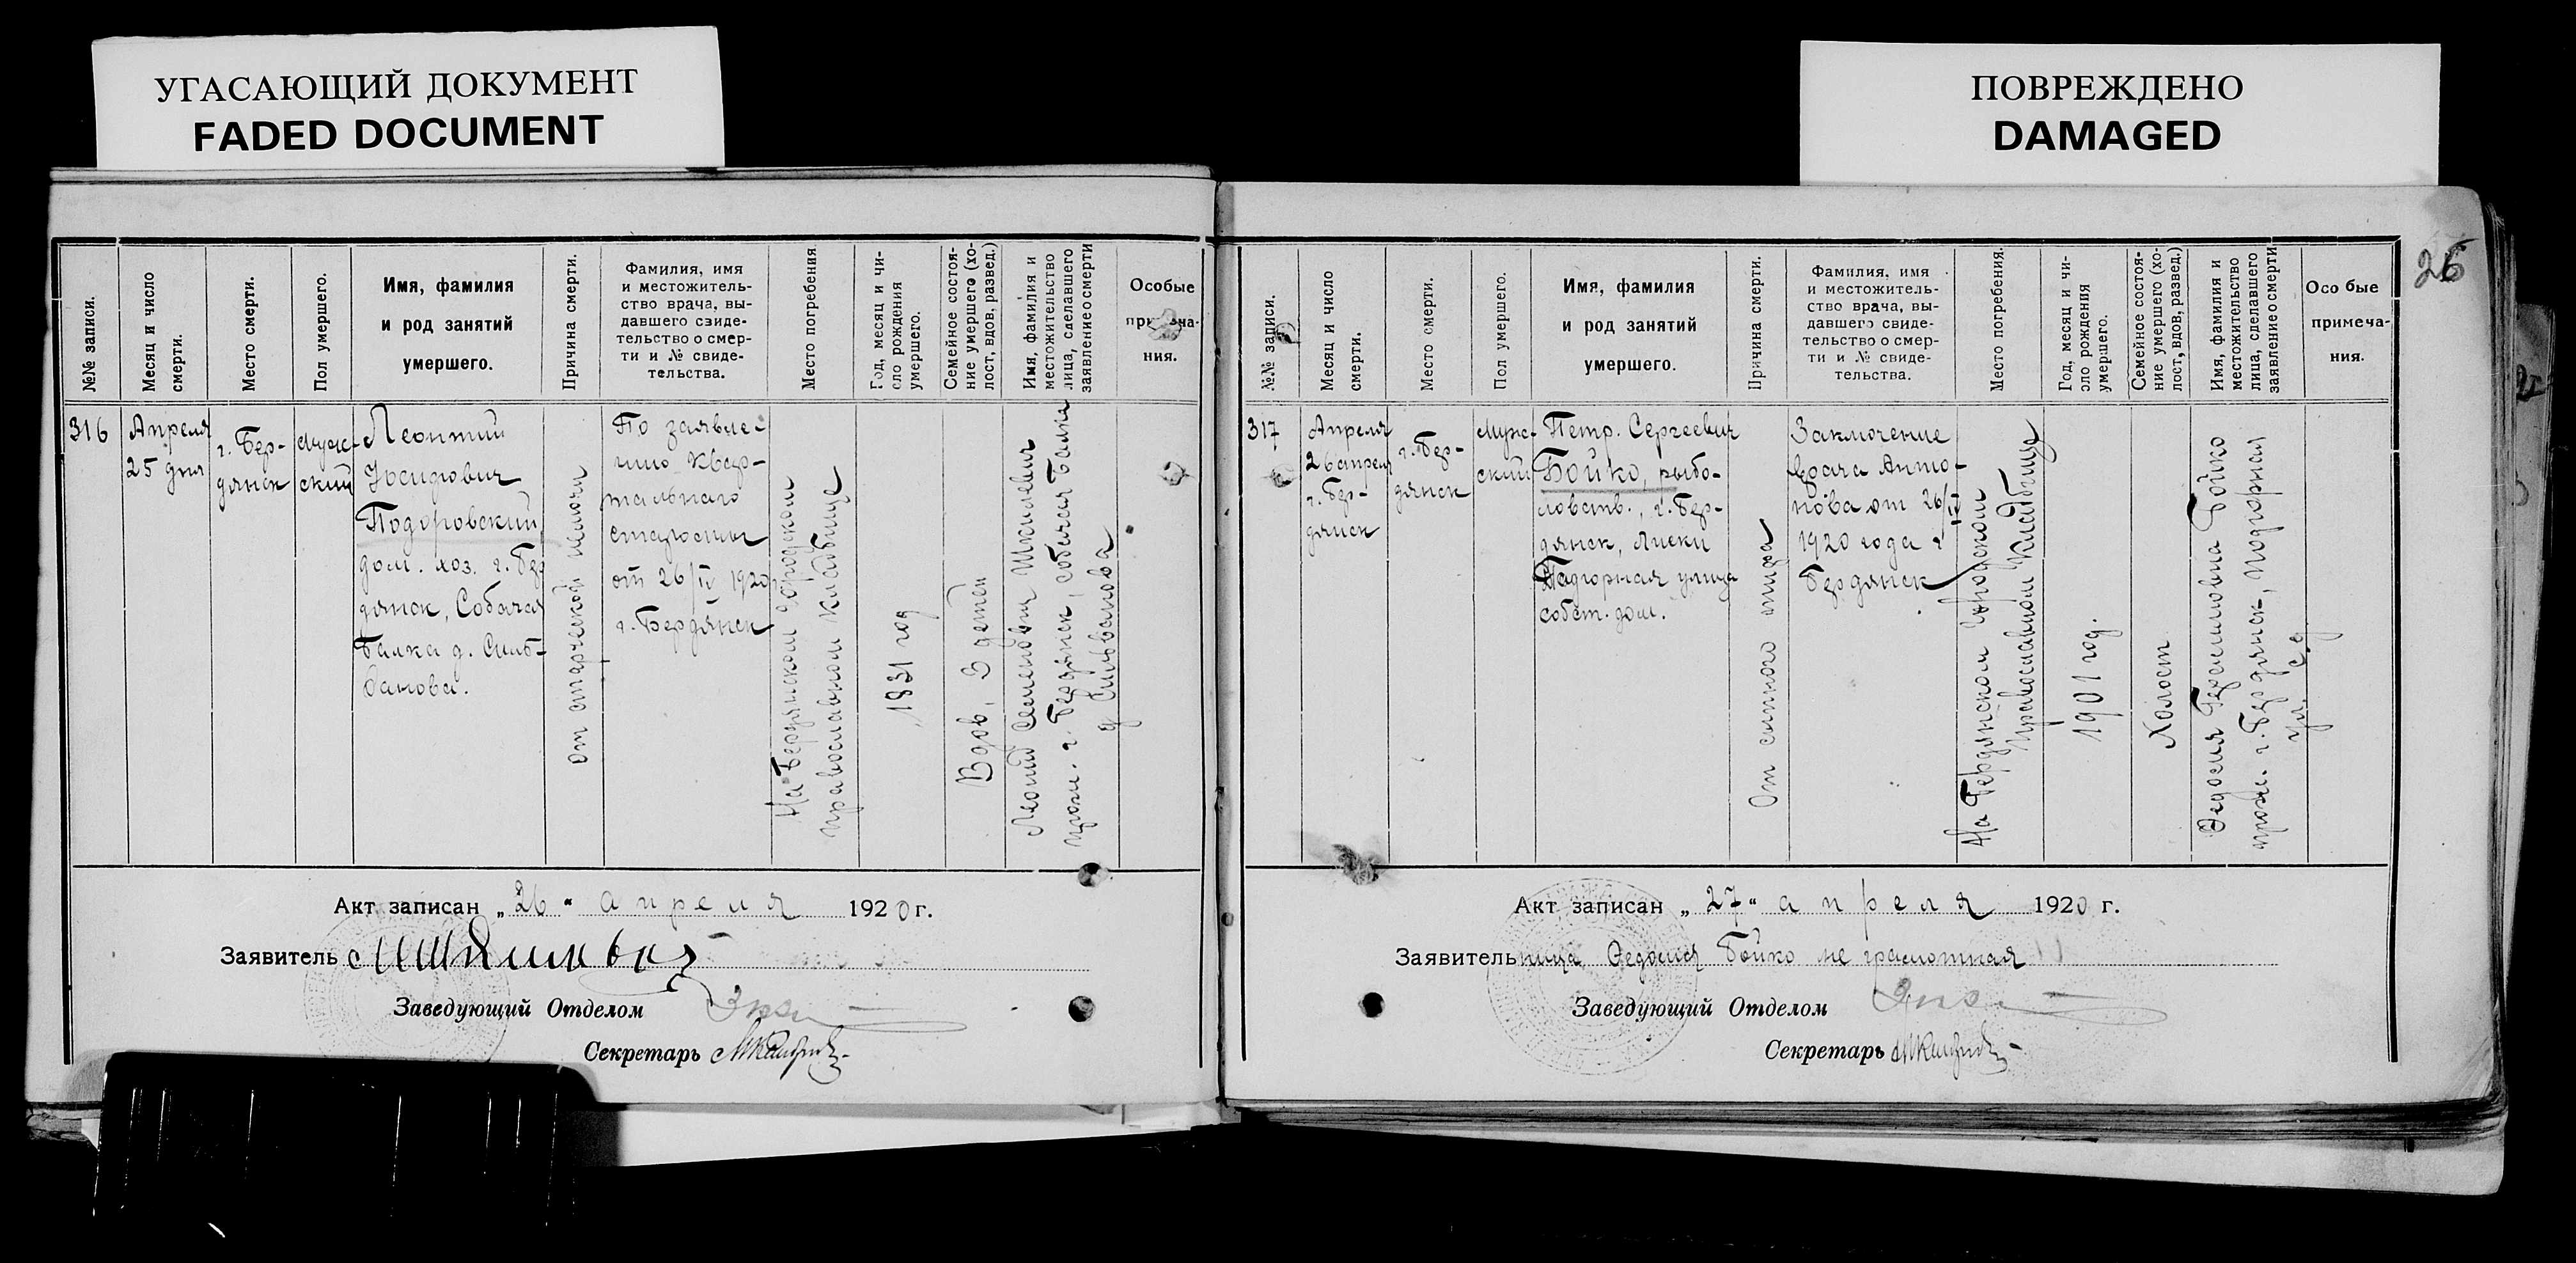 УГАСАЮЩИЙ ДОКУМЕНТ
FADED DOCUMENT
ПОВРЕЖДЕНО
DAMAGED
№№ записи.
Месяц и число
смерти.
Место смерти.
Пол умершего.
Имя, фамилия
и род занятий
умершего.
Причина смерти.
Фамилия, имя
и местожитель-
ство врача, вы-
давшего свиде-
тельство о смер-
ти и № свиде-
тельства.
Место погребения
Год, месяц и чи-
сло рождения
умершего.
Семейное состоя-
ние умершего (хо-
лост, вдов, развед.)
Имя, фамилия и
местожительство
лица, сделавшего
заявление о смерти
Особые
ния.
316
Апреля
25 дня
г. Бер-
дянск
Муж-
ский
Леонтий
Подоровский,
дом. хоз. г. Бер
дянск, Собачая
Балка д. Силь-
ванова.
От старческой немочи
По заявле-
нию квар-
тальнаго
старосты
от 26/IV 1920
г. Бердянск
На Бердянском городском
православном кладбище
1831 год
Вдов, 3 детей
Леонтий Семенович
прож. г. Бердянск, Собачая Балка
д Сильванова
Акт записан „26“ апреля 1920 г.
Заявитель
Заведующий Отделом
Секретарь
26
№№ записи.
Месяц и число
смерти.
Место смерти.
Пол умершего.
Имя, фамилия
и род занятий
умершего.
Причина смерти.
Фамилия, имя
и местожитель-
ство врача, вы-
давшего свиде-
тельство о смер-
ти и № свиде-
тельства.
Место погребения.
Год, месяц и чи-
сло рождения
умершего.
Семейное состоя-
ние умершего (хо-
лост, вдов, развед.)
Имя, фамилия и
местожительство
лица, сделавшего
заявление о смерти
Особые
примеча-
ния.
317
Апреля
26 апреля
г. Бер-
дянск
г. Бер-
дянск
Муж-
ский
Петр. Сергеевич
Бойко, рыбо-
ловств., г. Бер-
дянск, Лиски
Падгорная улица
собст. дом.
От сыпного тифа
Заключение
врача Анто-
нова от 26/IV
1920 года г
Бердянск
На Бердянском городском
православном кладбище
1901 год.
Холост
Федосия Герасимовна Бойко
прож. г. Бердянск, Подгорная
ул. с. д
Акт записан „27“ апреля 1920 г.
Заявительница Федосия Бойко не грамотная
Заведующий Отделом
Секретарь